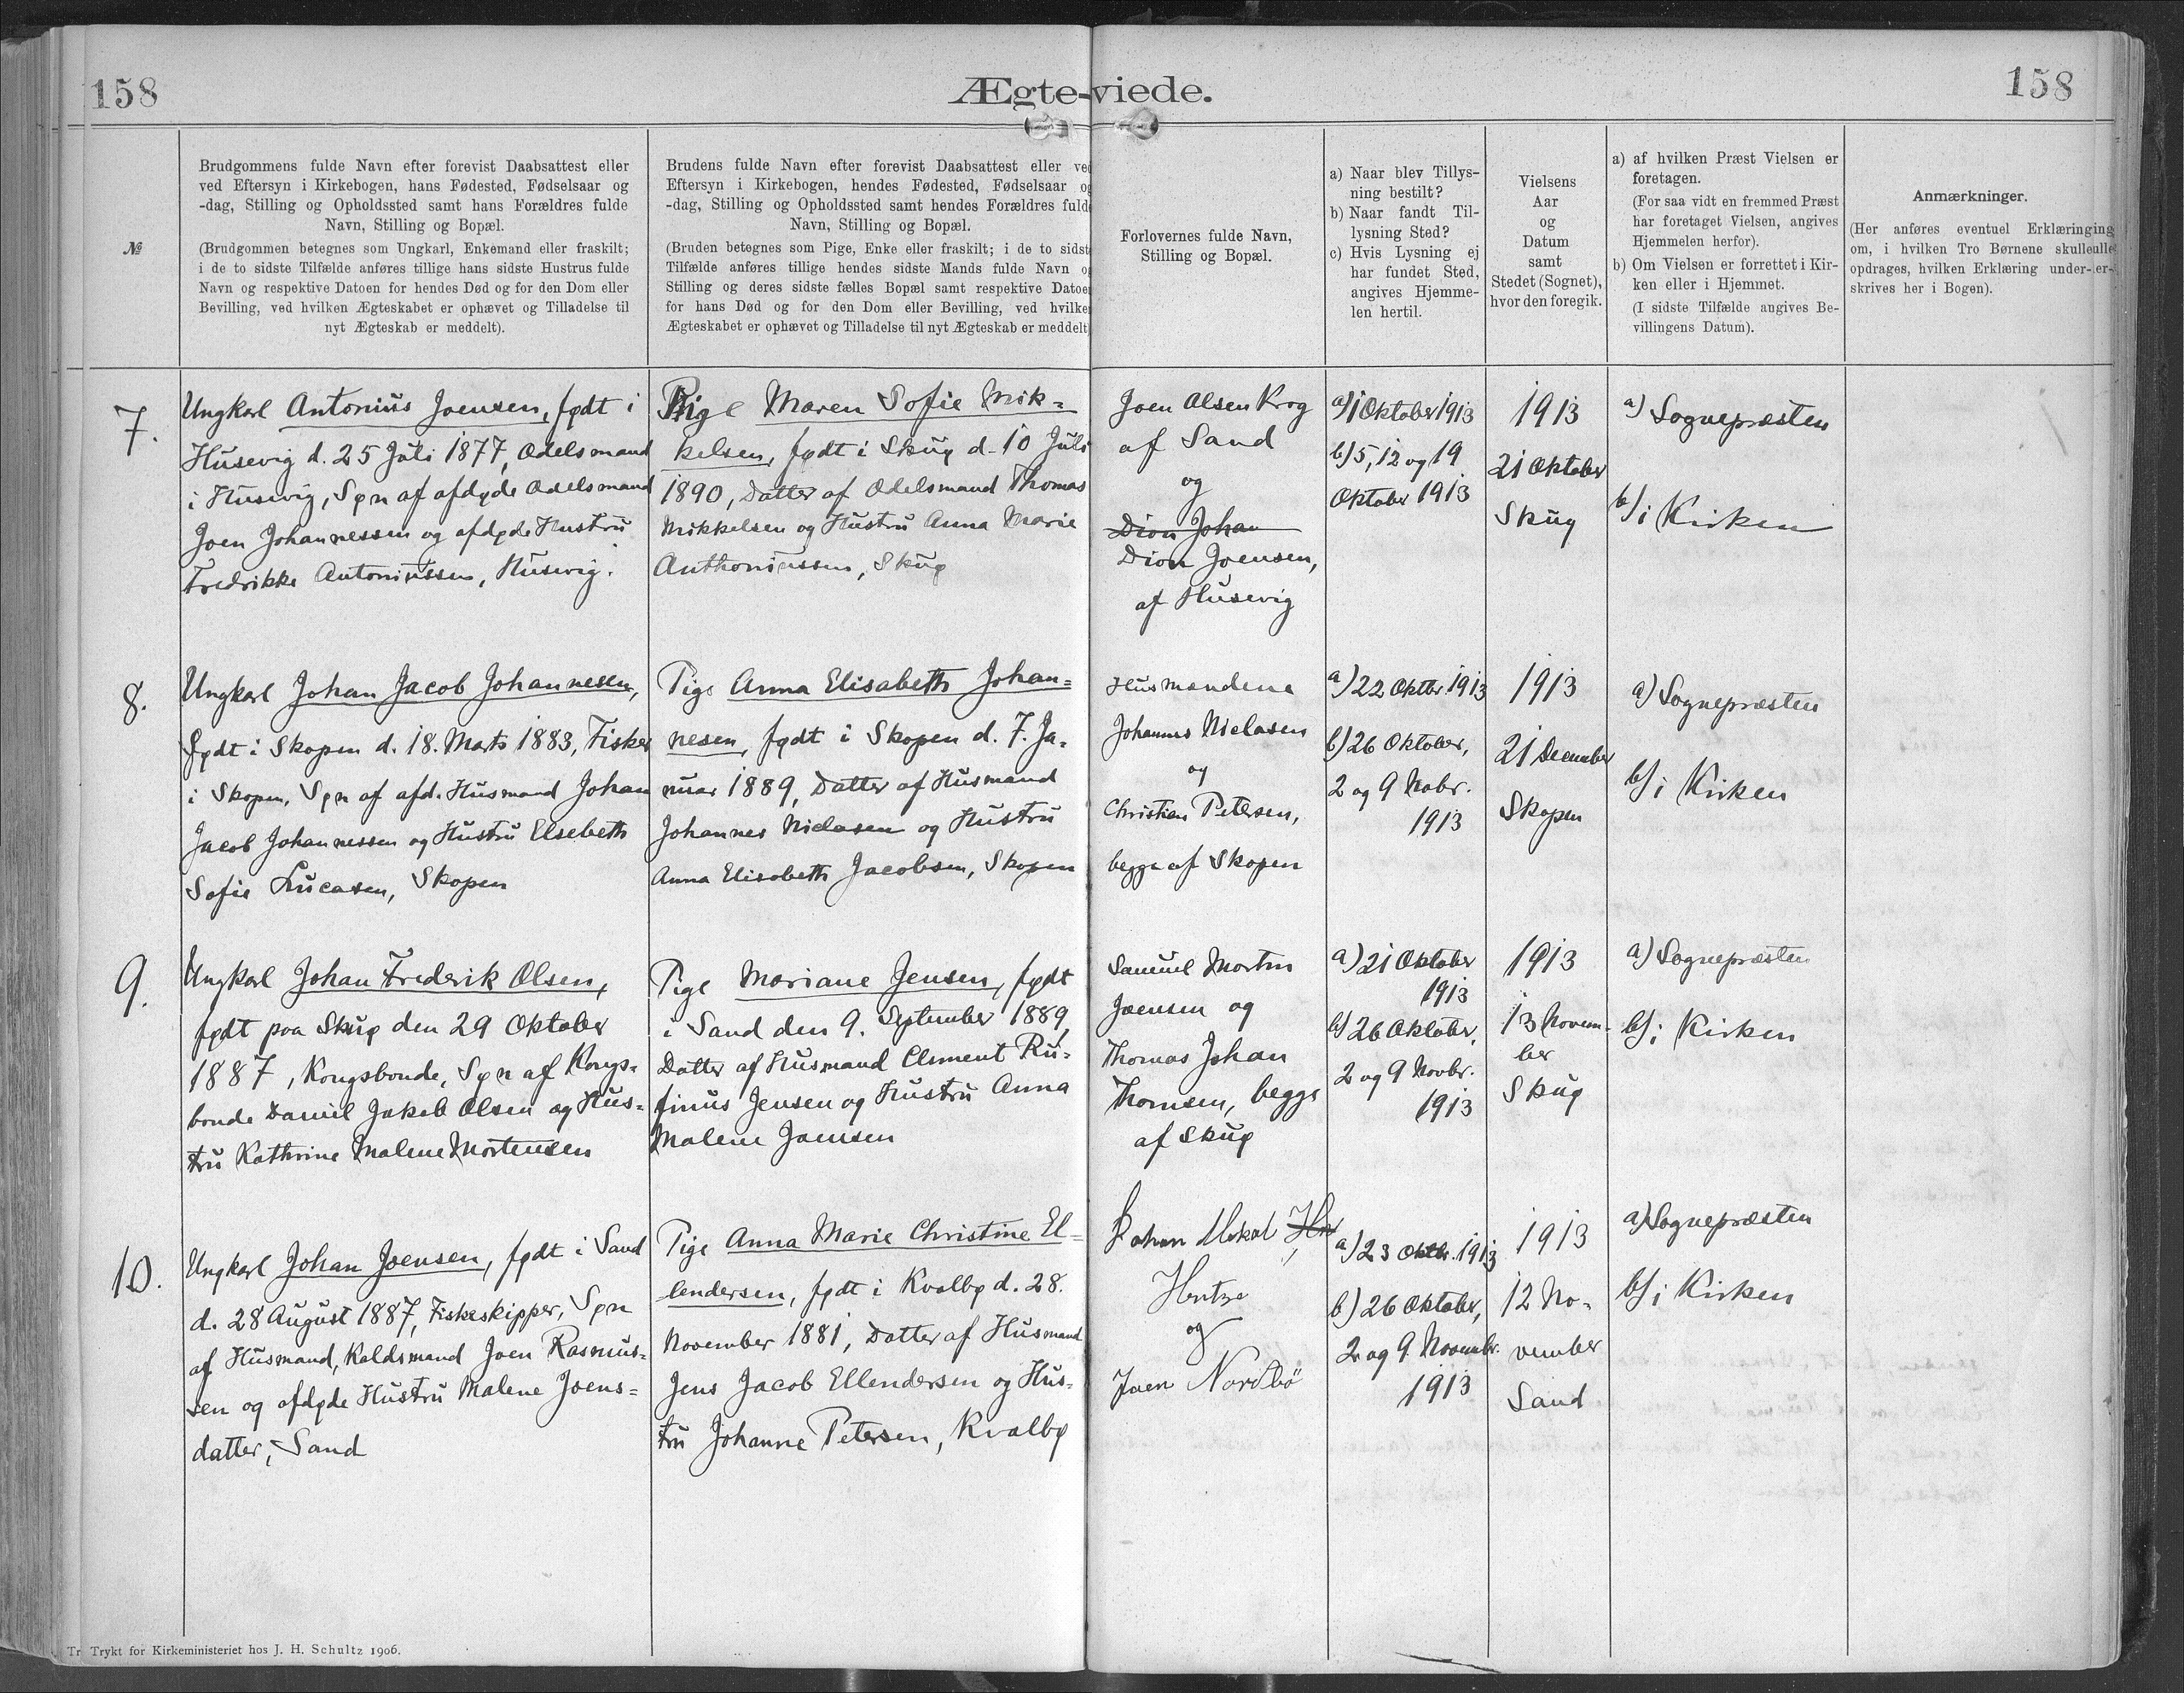 158
Ægte-viede.
158
№
Brudgommens fulde Navn efter forevist Daabsattest eller
ved Eftersyn i Kirkebogen, hans Fødested, Fødselsaar og
-dag, Stilling og Opholdssted samt hans Forældres fulde
Navn, Stilling og Bopæl.
(Brudgommen betegnes som Ungkarl, Enkemand eller fraskilt;
i de to sidste Tilfælde anføres tillige hans sidste Hustrus fulde
Navn og respektive Datoen for hendes Død og for den Dom eller
Bevilling, ved hvilken Ægteskabet er ophævet og Tilladelse til
nyt Ægteskab er meddelt).
Brudens fulde Navn efter forevist Daabsattest eller ved
Eftersyn i Kirkebogen, hendes Fødested, Fødselsaar og
-dag, Stilling og Opholdssted samt hendes Forældres fulde
Navn, Stilling og Bopæl.
(Bruden betegnes som Pige, Enke eller fraskilt; i de to sidst
Tilfælde anføres tillige hendes sidste Mands fulde Navn o
Stilling og deres sidste fælles Bopæl samt respektive Datoe
for hans Død og for den Dom eller Bevilling, ved hvilke
Ægteskabet er ophævet og Tilladelse til nyt Ægteskab er meddelt
Forlovernes fulde Navn,
Stilling og Bopæl.
a) Naar blev Tillys-
ning bestilt?
b) Naar fandt Til-
lysning Sted?
c) Hvis Lysning ej
har fundet Sted,
angives Hjemme-
len hertil.
Vielsens
Aar
og
Datum
samt
Stedet (Sognet),
hvor den foregik.
a) af hvilken Præst Vielsen er
foretagen.
(For saa vidt en fremmed Præst
har foretaget Vielsen, angives
Hjemmelen herfor).
b) Om Vielsen er forrettet i Kir-
ken eller i Hjemmet.
(I sidste Tilfælde angives Be-
villingens Datum).
Anmærkninger.
(Her anføres eventuel Erklæringing
om, i hvilken Tro Børnene skulleulle
opdrages, hvilken Erklæring under-er-
skrives her i Bogen).
7.
Ungkarl Antonius Joensen, født i
Husevig d. 25 Juli 1877, Odelsmand
i Husevig, Søn af afdøde Odelsmand
Joen Johannessen og afdøde Hustru
Fredrikke Antoniussen, Husevig.
Pige Maren Sofie Mik=
kelsen, født i Skuø d. 10 Juli
1890, Datter af Odelsmand Thomas
Mikkelsen og Hustru Anna Marie
Anthoniussen, Skuø
Joen Olsen Krog
af Sand
og
Dion Johan
Dion Joensen,
af Husevig
a) 1 Oktober 1913
b) 5, 12 og 19
Oktober 1913
1913
21 Oktober
Skuø
a) Sognepræsten
b) i Kirken
8.
Ungkarl Johan Jacob Johannesen,
født i Skopen d. 18. Marts 1883, Fisker
i Skopen, Søn af afd. Husmand Johan
Jacob Johannessen og Hustru Elsebeth
Sofie Lucasen, Skopen
Pige Anna Elisabeth Johan=
nesen, født i Skopen d. 7. Ja-
nuar 1889, Datter af Husmand
Johannes Nielasen og Hustru
Anna Elisabeth Jacobsen, Skopen
Husmændene
Johannes Nielasen
og
Christian Petersen,
begge af Skopen
a) 22 Oktbr. 1913
b) 26 Oktober,
2 og 9 Nobr.
1913
1913
21 December
Skopen
a) Sognepræsten
b) i Kirken
9.
Ungkarl Johan Frederik Olsen,
født paa Skuø den 29 Oktober
1887, Kongsbonde, Søn af Kongs-
bonde Daniel Jakob Olsen og Hus-
tru Kathrine Malene Mortensen
Pige Mariane Jensen, født
i Sand den 9. September 1889,
Datter af Husmand Clement Ru-
finus Jensen og Hustru Anna
Malene Joensen
Samuel Morten
Joensen og
Thomas Johan
Thomsen, begge
af Skuø
a) 21 Oktober
1913
b) 26 Oktober,
2 og 9 Novbr.
1913
1913
13 Novem-
ber
Skuø
a) Sognepræsten
b) i Kirken
10.
Ungkarl Johan Joensen, født i Sand
d. 28 August 1887, Fiskeskipper, Søn
af Husmand, Kaldsmand Joen Rasmus-
sen og afdøde Hustru Malene Joens=
datter, Sand
Pige Anna Marie Christine El-
lendersen, født i Kvalbø d. 28.
November 1881, Datter af Husmand
Jens Jacob Ellendersen og Hus-
tru Johanne Petersen, Kvalbø
Johan Hentze
og
Joen Nordbö
a) 23 Oktbr. 1913
b) 26 Oktober,
2 og 9 Novembr.
1913
1913
12 No-
vember
Sand
a) Sognepræsten
b) i Kirken
Tr Trykt for Kirkeministeriet hos J. H. Schultz 1906.